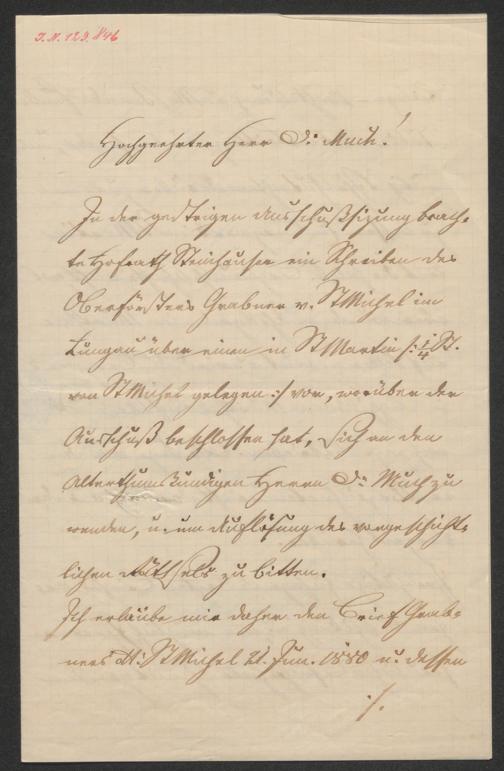 J. N. 129.846
Hochgeehrter Herr Dr. Much!
In der gestrigen Ausschußsizung brach-
te Hofrath Steinhauser ein Schreiben des
Oberförsters Grabner v. St Michel im
Lungau über einen in St Martin /: 1/4 St.
von St Michel gelegen :/ vor, worüber der
Ausschuß beschlossen hat, sich an den
alterthumskundigen Herrn Dr. Much zu
wenden, u. um Auflösung des vorgeschicht-
lichen Räthsels zu bitten.
Ich erlaube mir daher den Brief Grab-
ners St Michel 21. Jun. 1880 u. dessen
./.